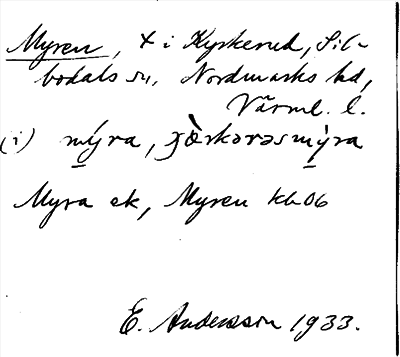 Myren, + i Kyrkerud, Sil-
bodals sn, Nordmarks hd,
Värml. l.
(i) mýra, 
Myra ek, Myren kb 06
E. Andersson 1933.